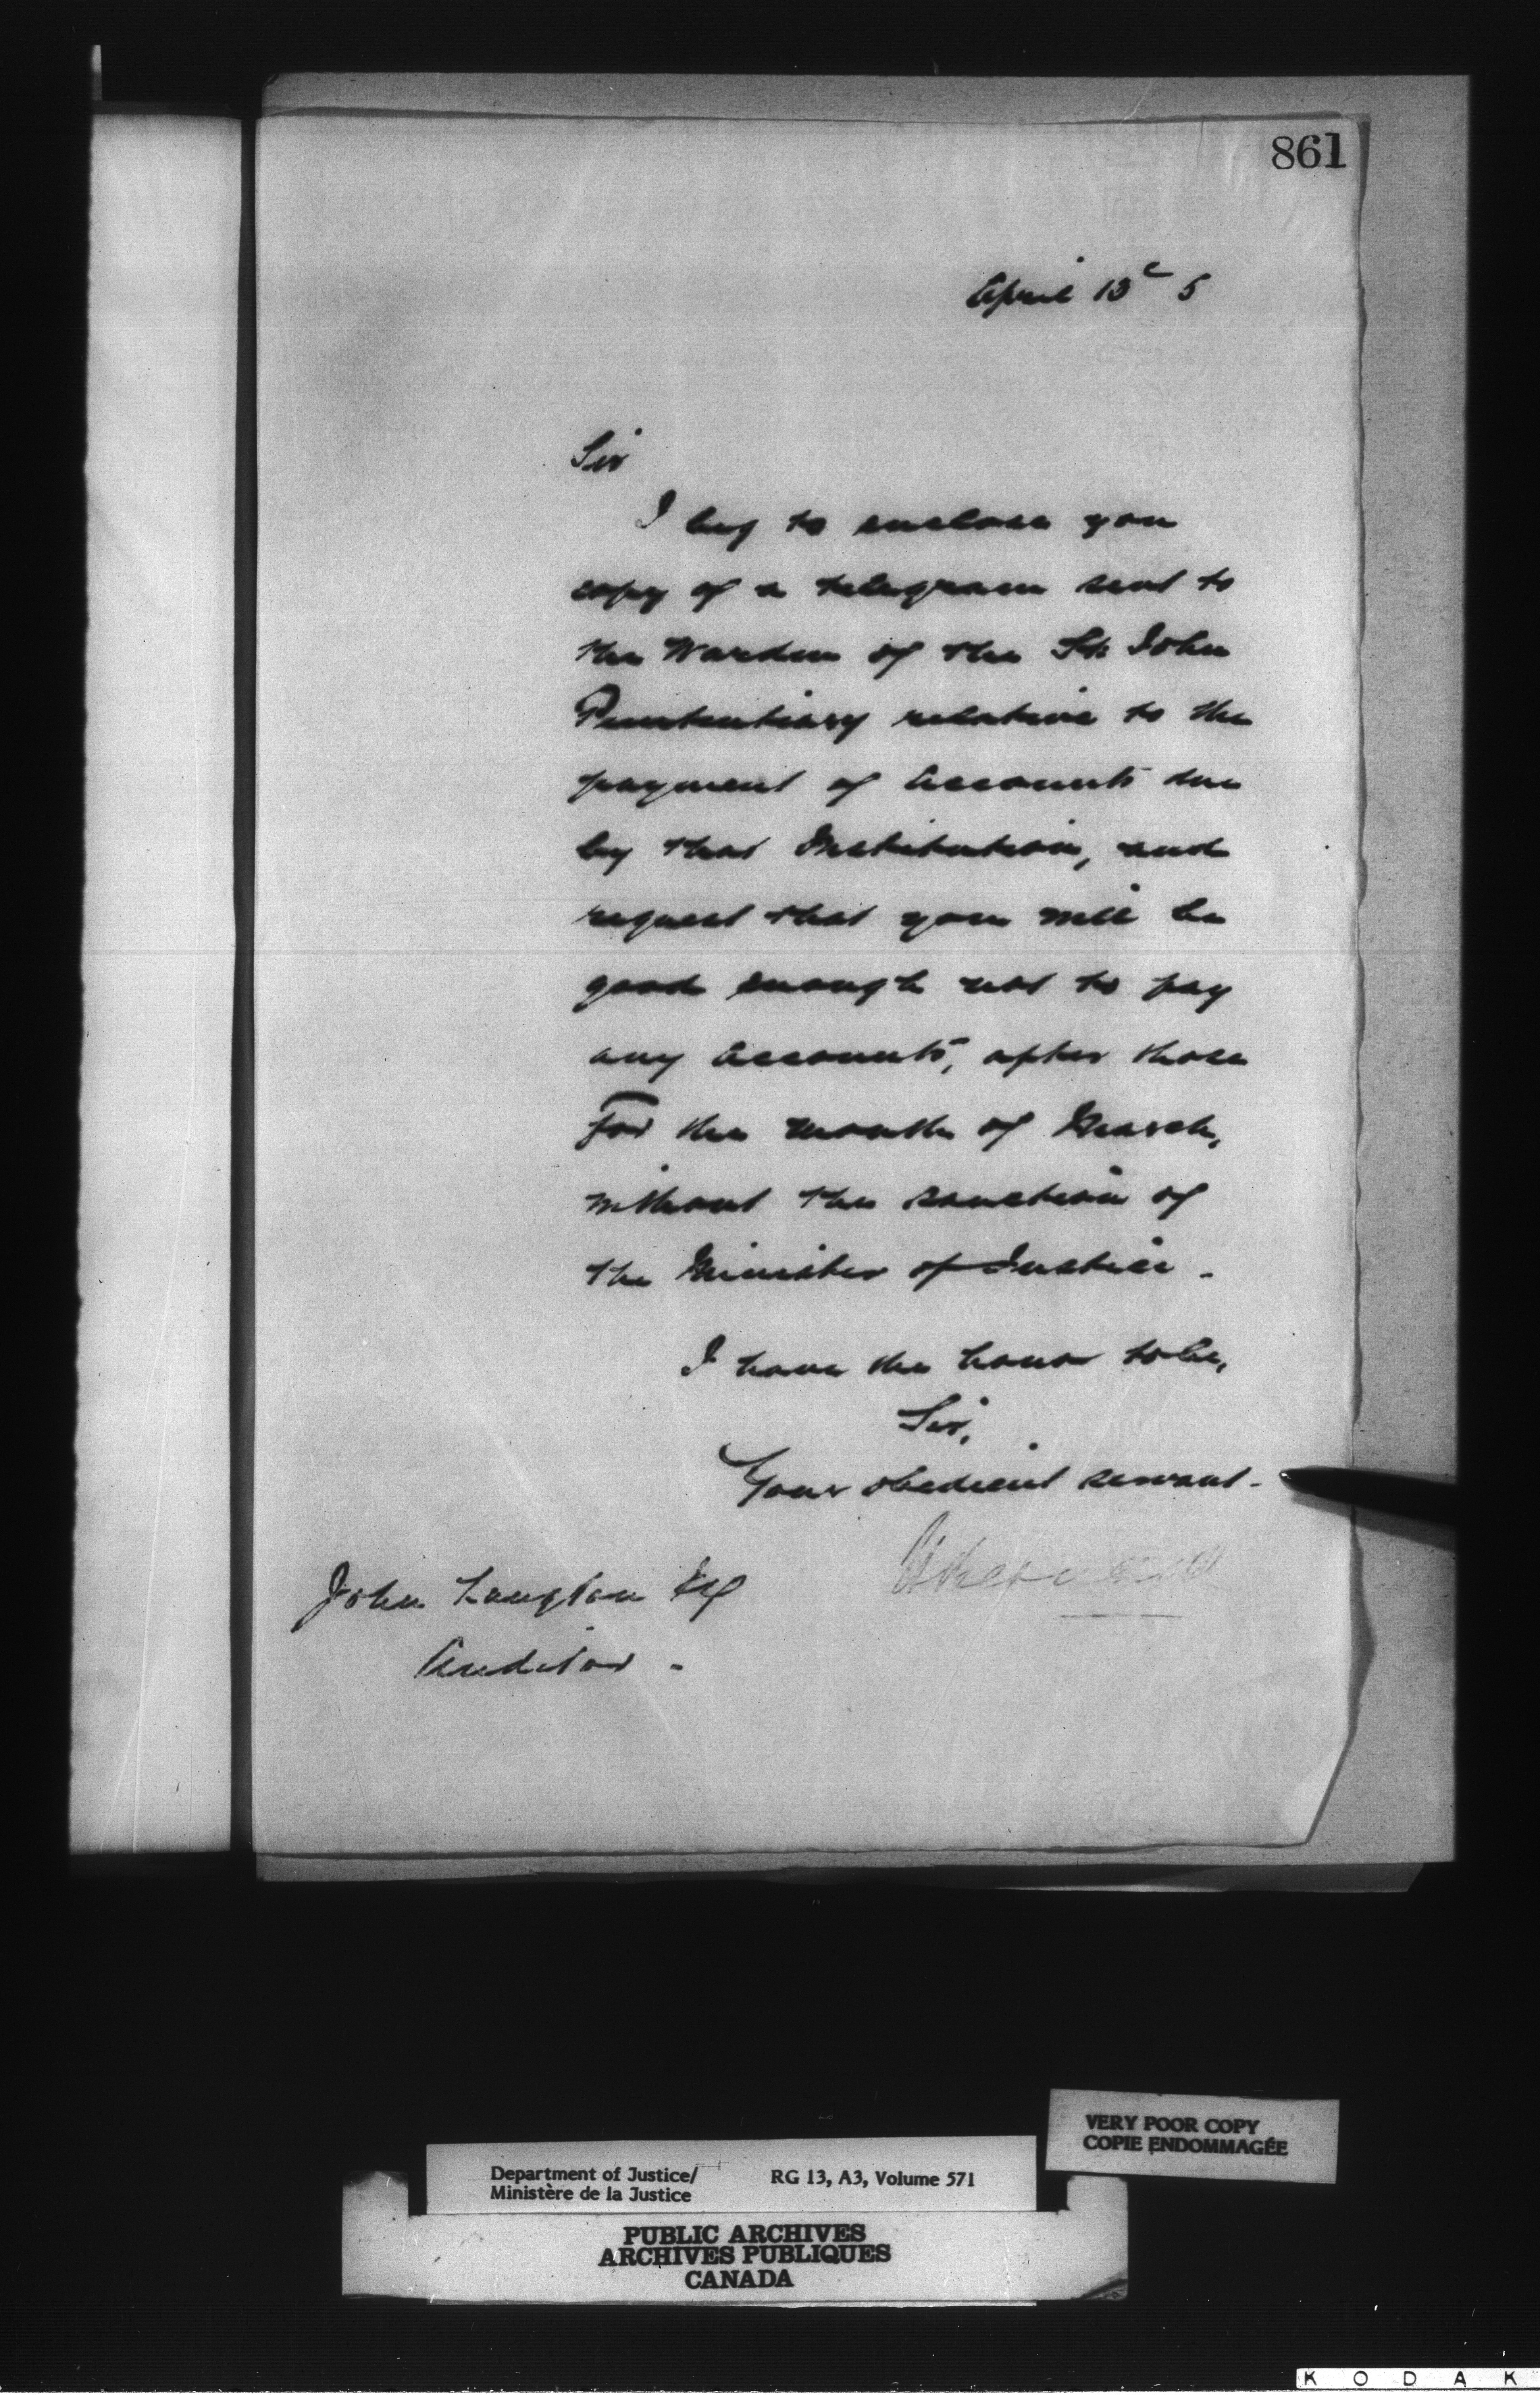 861
April 13th 5
Sir
I beg to enclose you
copy of a telegram sent to
the Warden of the St. John
Penitentiary relative to the
payment of accounts due
by that Institution, and
request that you will be
good enough not to pay
any accounts, after those
for the month of March,
without the sanction of
the Minister of Justice -
I have the honor to be,
Sir,
Your obedient servant -
John Langton Esq
Auditor -
VERY POOR COPY
COPIE ENDOMMAGÉE
Department of Justice/ RG 13, A3, Volume 571
Ministère de la Justice
PUBLIC ARCHIVES
ARCHIVES PUBLIQUES
CANADA
KODAK